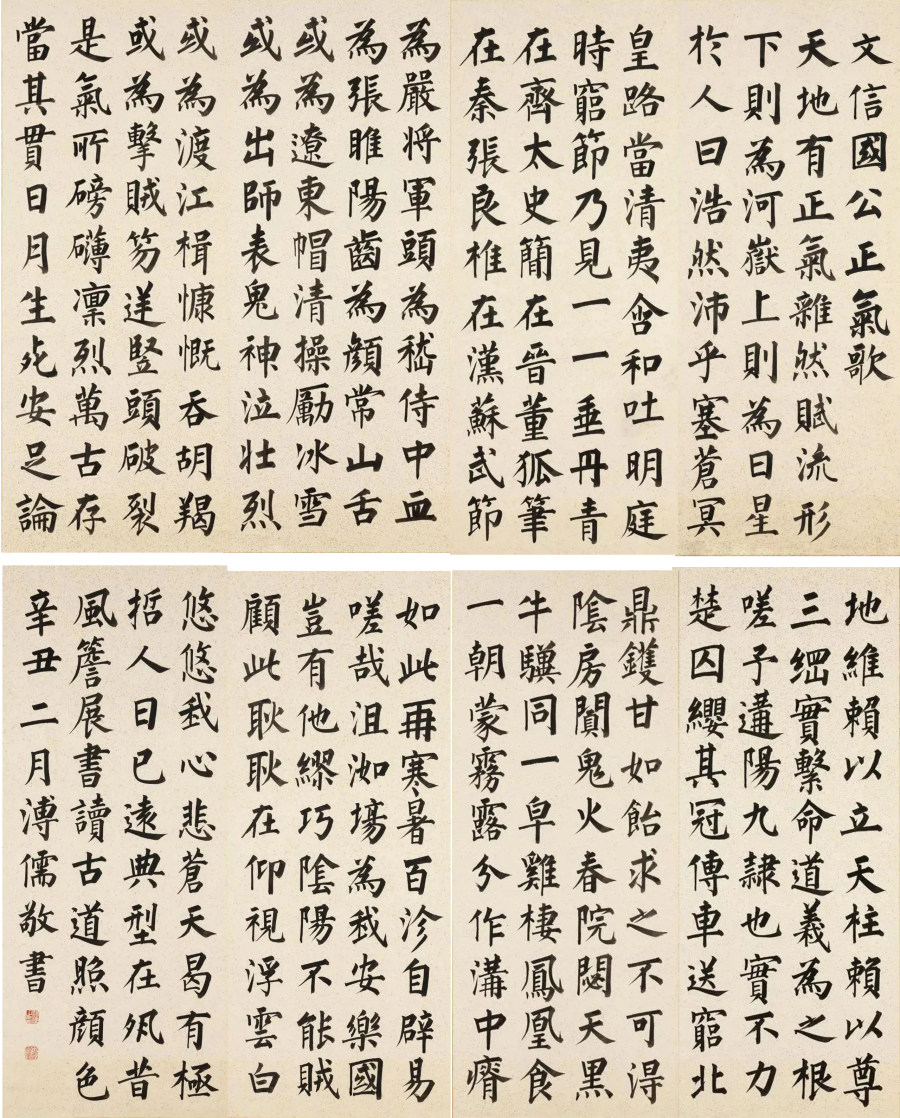 文信國公正氣歌
天地有正氣雜然賦流形
下則為河嶽上則為日星
於人曰浩然沛乎塞蒼冥
皇路當清夷含和吐明庭
時窮節乃見一一垂丹青
在齊太史簡在晉董狐筆
在秦張良椎在漢蘇武節
為嚴将軍頭為嵇侍中血
為張睢陽齒為顏常山舌
或為遼東帽清操勵冰雪
或為出師表鬼神泣壯烈
或為渡江楫慷慨吞胡羯
或為擊賊笏逆豎頭破裂
是氣所磅礴凜烈萬古存
當其貫日月生死安足論
地維賴以立天柱賴以尊
三綱實繫命道義為之根
嗟予遘陽九隸也實不力
楚囚纓其冠傳車送窮北
鼎鑊甘如飴求之不可得
陰房闃鬼火春院閟天黑
牛驥同一皁雞棲鳳凰食
一朝蒙霧露分作溝中瘠
如此再寒暑百沴自辟易
嗟哉沮洳場為我安樂國
豈有他繆巧陰陽不能賊
顧此耿耿在仰視浮雲白
悠悠我心悲蒼天曷有極
哲人日已遠典型在夙昔
風簷展書讀古道照顏色
辛丑二月溥儒敬書